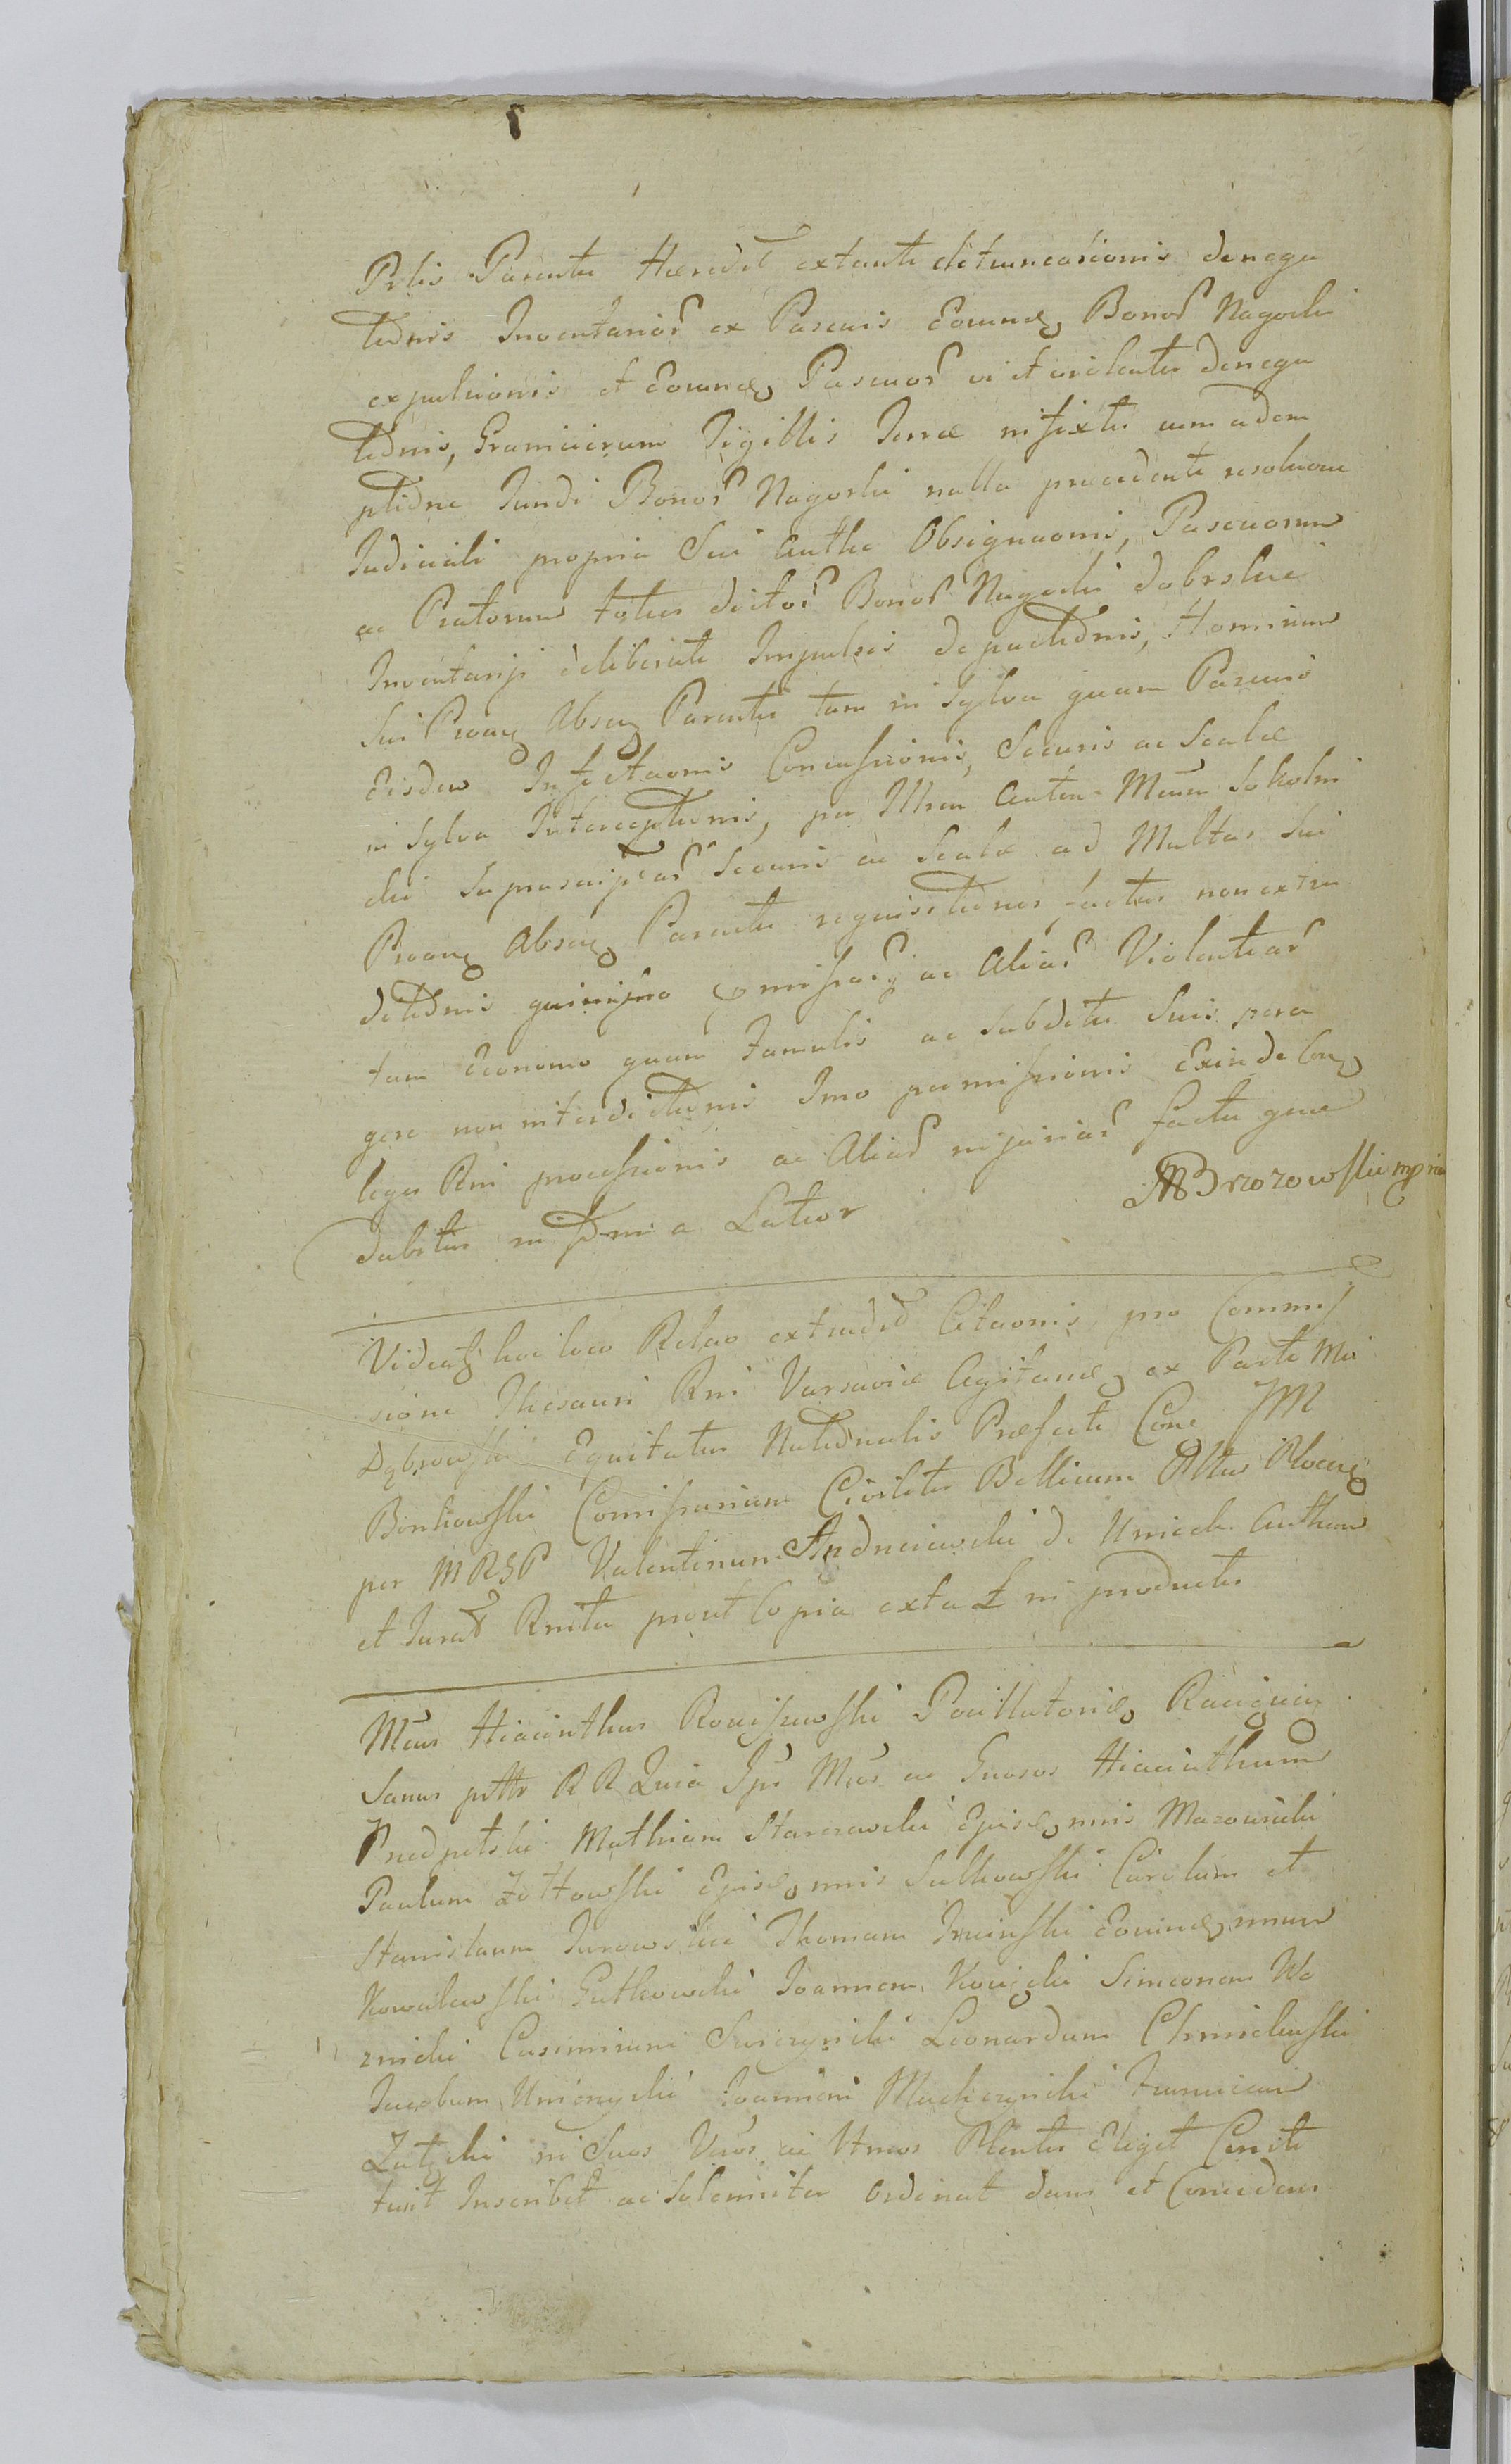 Prlis Parentu Haeredit extantis detruncationis denega
tionis Inventarior ex Pascuis Eorundem Bonor Nagorki
expulsionis et Eorundem Pascuor vi et violenter denega
tionis, Granicierum Sigillis Terrae infixtis cum adem
ptione Fundi Bonor Nagorki nulla praecedente resolucone
Judiciali propria Sui Autha Obsignaonis, Pascuorum
ac Pratorum totius dictor Bonor Nagorki dobrskie
Inventarji deliberate Impulsis depactionis, Hominum
Sui Proane Absene Parentis tam in Sylva quam Pascuis
Eisdem Infectaonis Concussionis, Securis ac Scalae
in Sylva Interceptionis, per Illrem Anton Menn Sokolni
cki Suprascriptar Securis ac Scalae ad Multas Sui
Proane Absene Parentis requisitiones factas non extra
ditionis quinimo ac Aliar Violentiar
tam Economo quam Famulis ac Subditis Suis pera
gere non interdictionis Imo permissionis Exinde Con
leges Rni processionis ac Aliar injuriar factu gene
dubitur Latior
MBrzozowski mpria
Videatur hoc loco Relao extraded Citaonis pro Commis
sione Thesauri Rni Varsaviae Agitanda ex Parte Mci
Dąbrowski Equitatus Nationalis Praefecti Cone JM
Binkowski Comissarium Civilitis Bellicum Pltus Plocens
per MRGP Valentinum Andrzeiewski de Unieck Authum
et Jurat Rnitu prout Copia extat in productis
Mcus Hiacinthus Rociszewski Pocillatorides Raciązien
Sanus pttr R R Quia Ips Mcos ac Gnosos Hiacinthum
Przedpełski Mathiam Starczewski Ejusdemnis Mazowiecki
Paulum Żółtowski Ejusdemnis Sulkowski Carolum et
Stanislaum Jurowskie Thomam Eorundemnum
Kowalewski Gutkowski Joannem Kocięcki Simeonem Wo
znicki Casimirum Swiezynski Leonardum Chmielewski
Jacobum Unierzycki Joannem Mackczynski Franciscum
Zaleski in Suos Veros ac Ltmos Plentes Eleget Consti
tuit Inscribit ac Solenniter Ordinat dans et Concedens